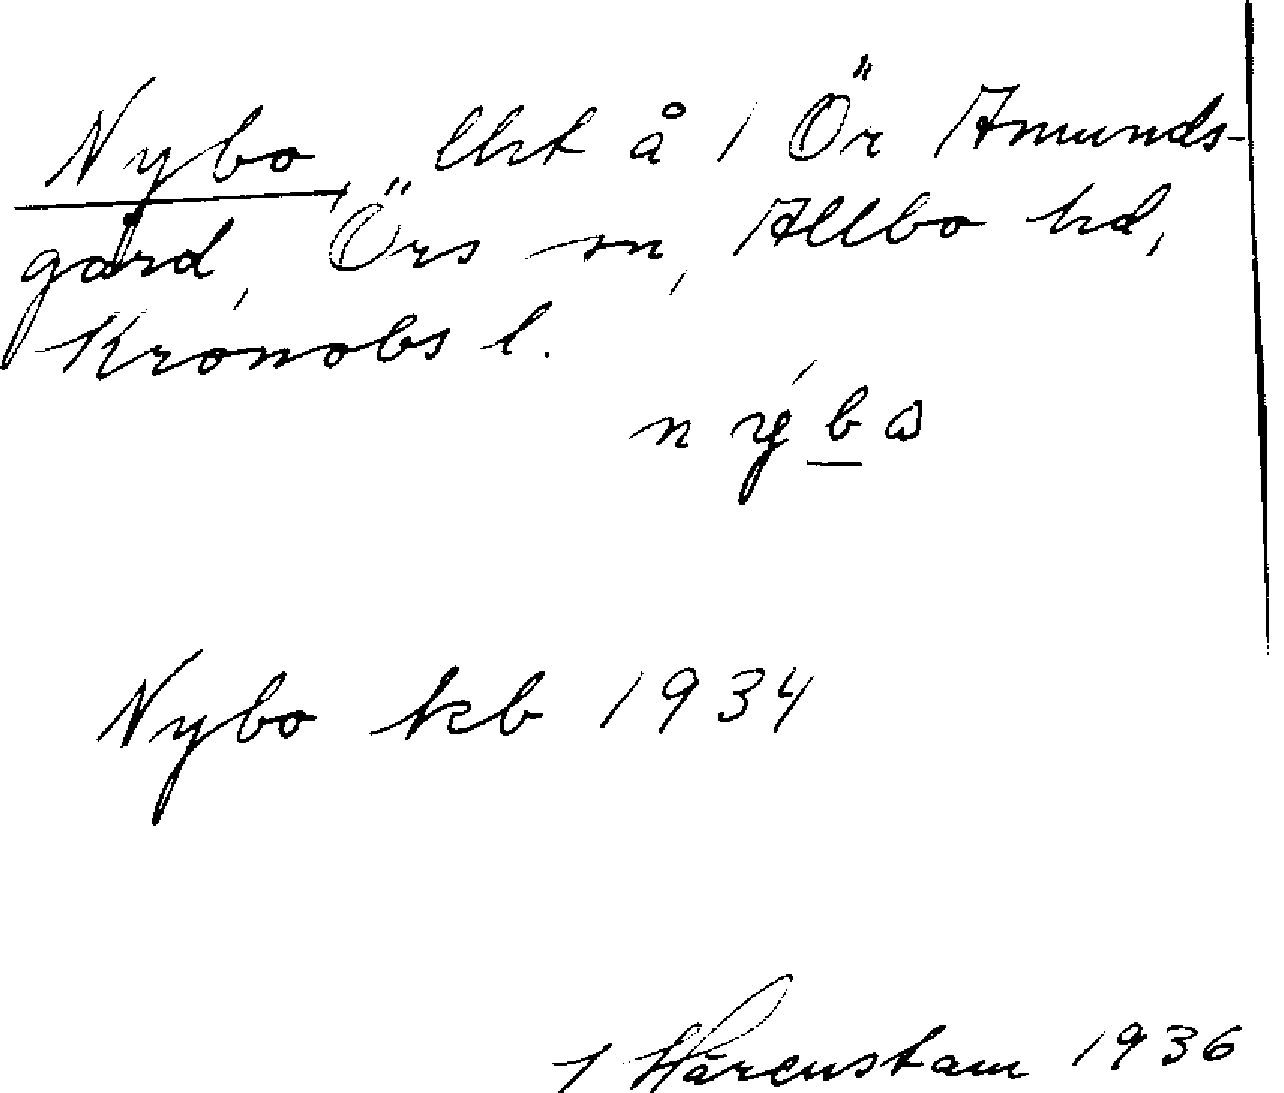 Nybo, lht å 1 Ör Amunds-
gård, Örs sn, Allbo hd,
Kronobs l.
Nybo kb 1934
Härenstam 1936